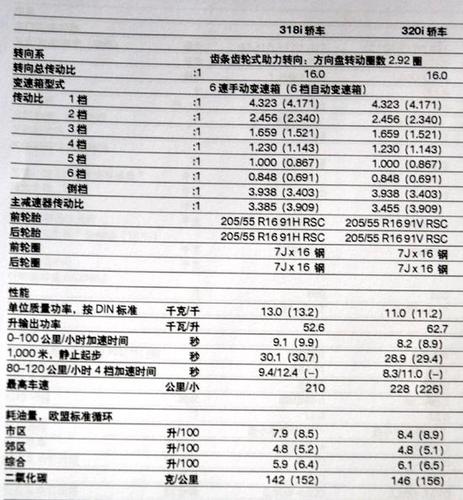 318i轿车 320i轿车
转向系 齿条齿轮式助力转向：方向盘转动圈数 2.92 圈
转向总传动比 :1 16.0 16.0
变速箱型式 6 速手动变速箱（6 档自动变速箱）
传动比 1 档 :1 4.323 (4.171) 4.323 (4.171)
2 档 :1 2.456 (2.340) 2.456 (2.340)
3 档 :1 1.659 (1.521) 1.659 (1.521)
4 档 :1 1.230 (1.143) 1.230 (1.143)
5 档 :1 1.000 (0.867) 1.000 (0.867)
6 档 :1 0.848 (0.691) 0.848 (0.691)
倒档 :1 3.938 (3.403) 3.938 (3.403)
主减速器传动比 :1 3.385 (3.909) 3.455 (3.909)
前轮胎 205/55 R16 91H RSC 205/55 R16 91V RSC
后轮胎 205/55 R16 91H RSC 205/55 R16 91V RSC
前轮圈 7J x 16 钢 7J x 16 钢
后轮圈 7J x 16 钢 7J x 16 钢
性能
单位质量功率，按 DIN 标准 千克/千 13.0 (13.2) 11.0 (11.2)
升输出功率 千瓦/升 52.6 62.7
0–100 公里/小时加速时间 秒 9.1 (9.9) 8.2 (8.9)
1,000 米，静止起步 秒 30.1 (30.7) 28.9 (29.4)
80–120 公里/小时 4 档加速时间 秒 9.4/12.4 (–) 8.3/11.0 (–)
最高车速 公里/小 210 228 (226)
耗油量，欧盟标准循环
市区 升/100 7.9 (8.5) 8.4 (8.9)
郊区 升/100 4.8 (5.2) 4.8 (5.1)
综合 升/100 5.9 (6.4) 6.1 (6.5)
二氧化碳 克/公里 142 (152) 146 (156)